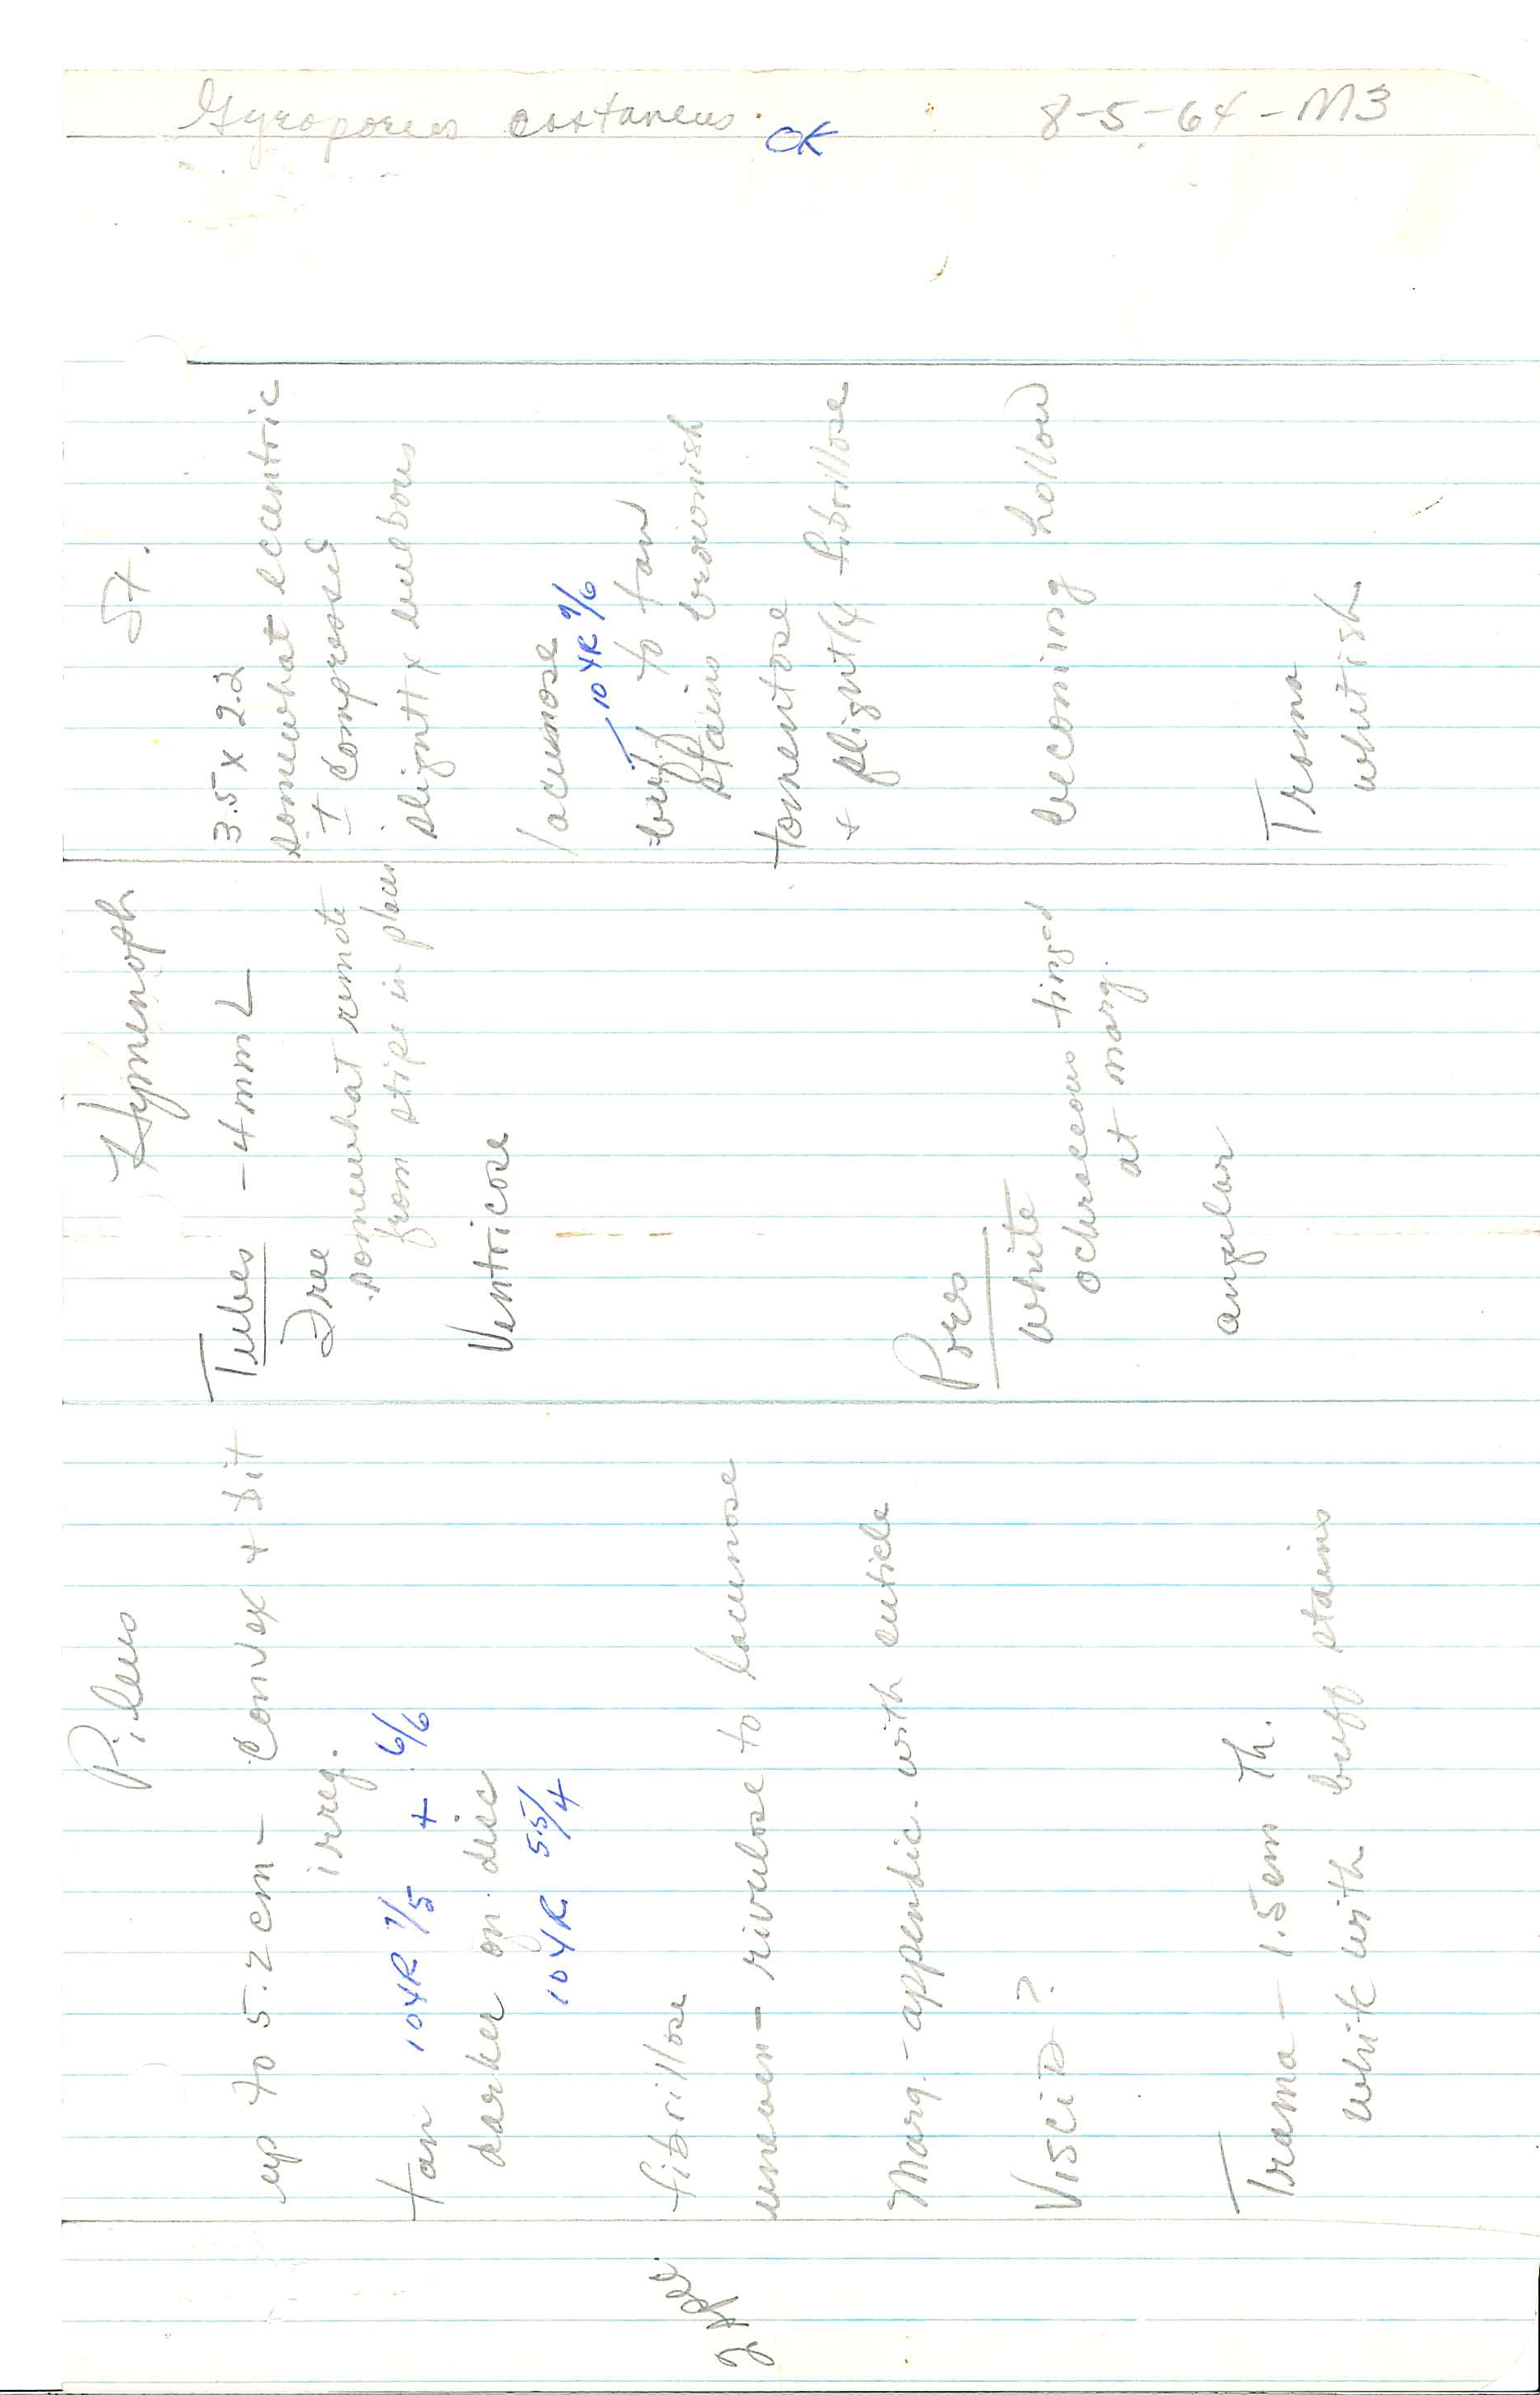 Gyroporus castaneus OK 8-5-64-M3
2 spec
Pileus
up to 5.2 cm - Convex + bit
irreg.
tan 10YR 7/5 + 6/6
darker on disc
10YR 5.5/4
fibrillose
uneven - rivulose to lacunose
Marg. - appendic. with cuticle
Viscid?
Trama - 1.5 cm Th.
white with buff stains
Hymenoph
Tubes - 4mm L
Free
somewhat remote
from stipe in places
Ventricose
Pores
white
ochraceous tinged
at marg.
angular
St.
3.5 x 2.2
somewhat eccentric
± compressed
slightly bulbous
lacunose
10YR 7/6
buff to tan
stains brownish
tomentose
+ slightly fibrillose
becoming hollow
Trama
whitish